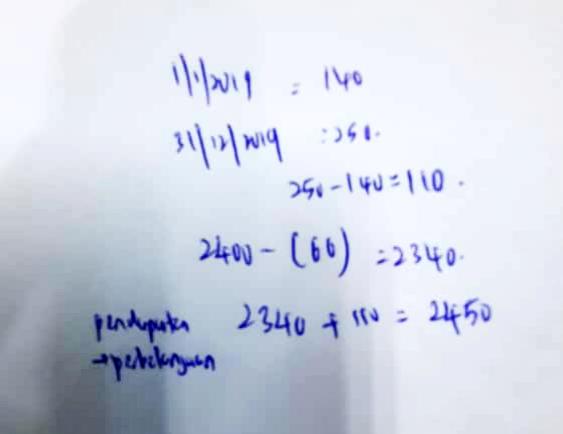 1/1/2019 = 140
31/12/2019 : 250.
250 - 140 = 110.
2400 - (60) = 2340.
pendapatan 2340 + 110 = 2450
→ perbelanjaan